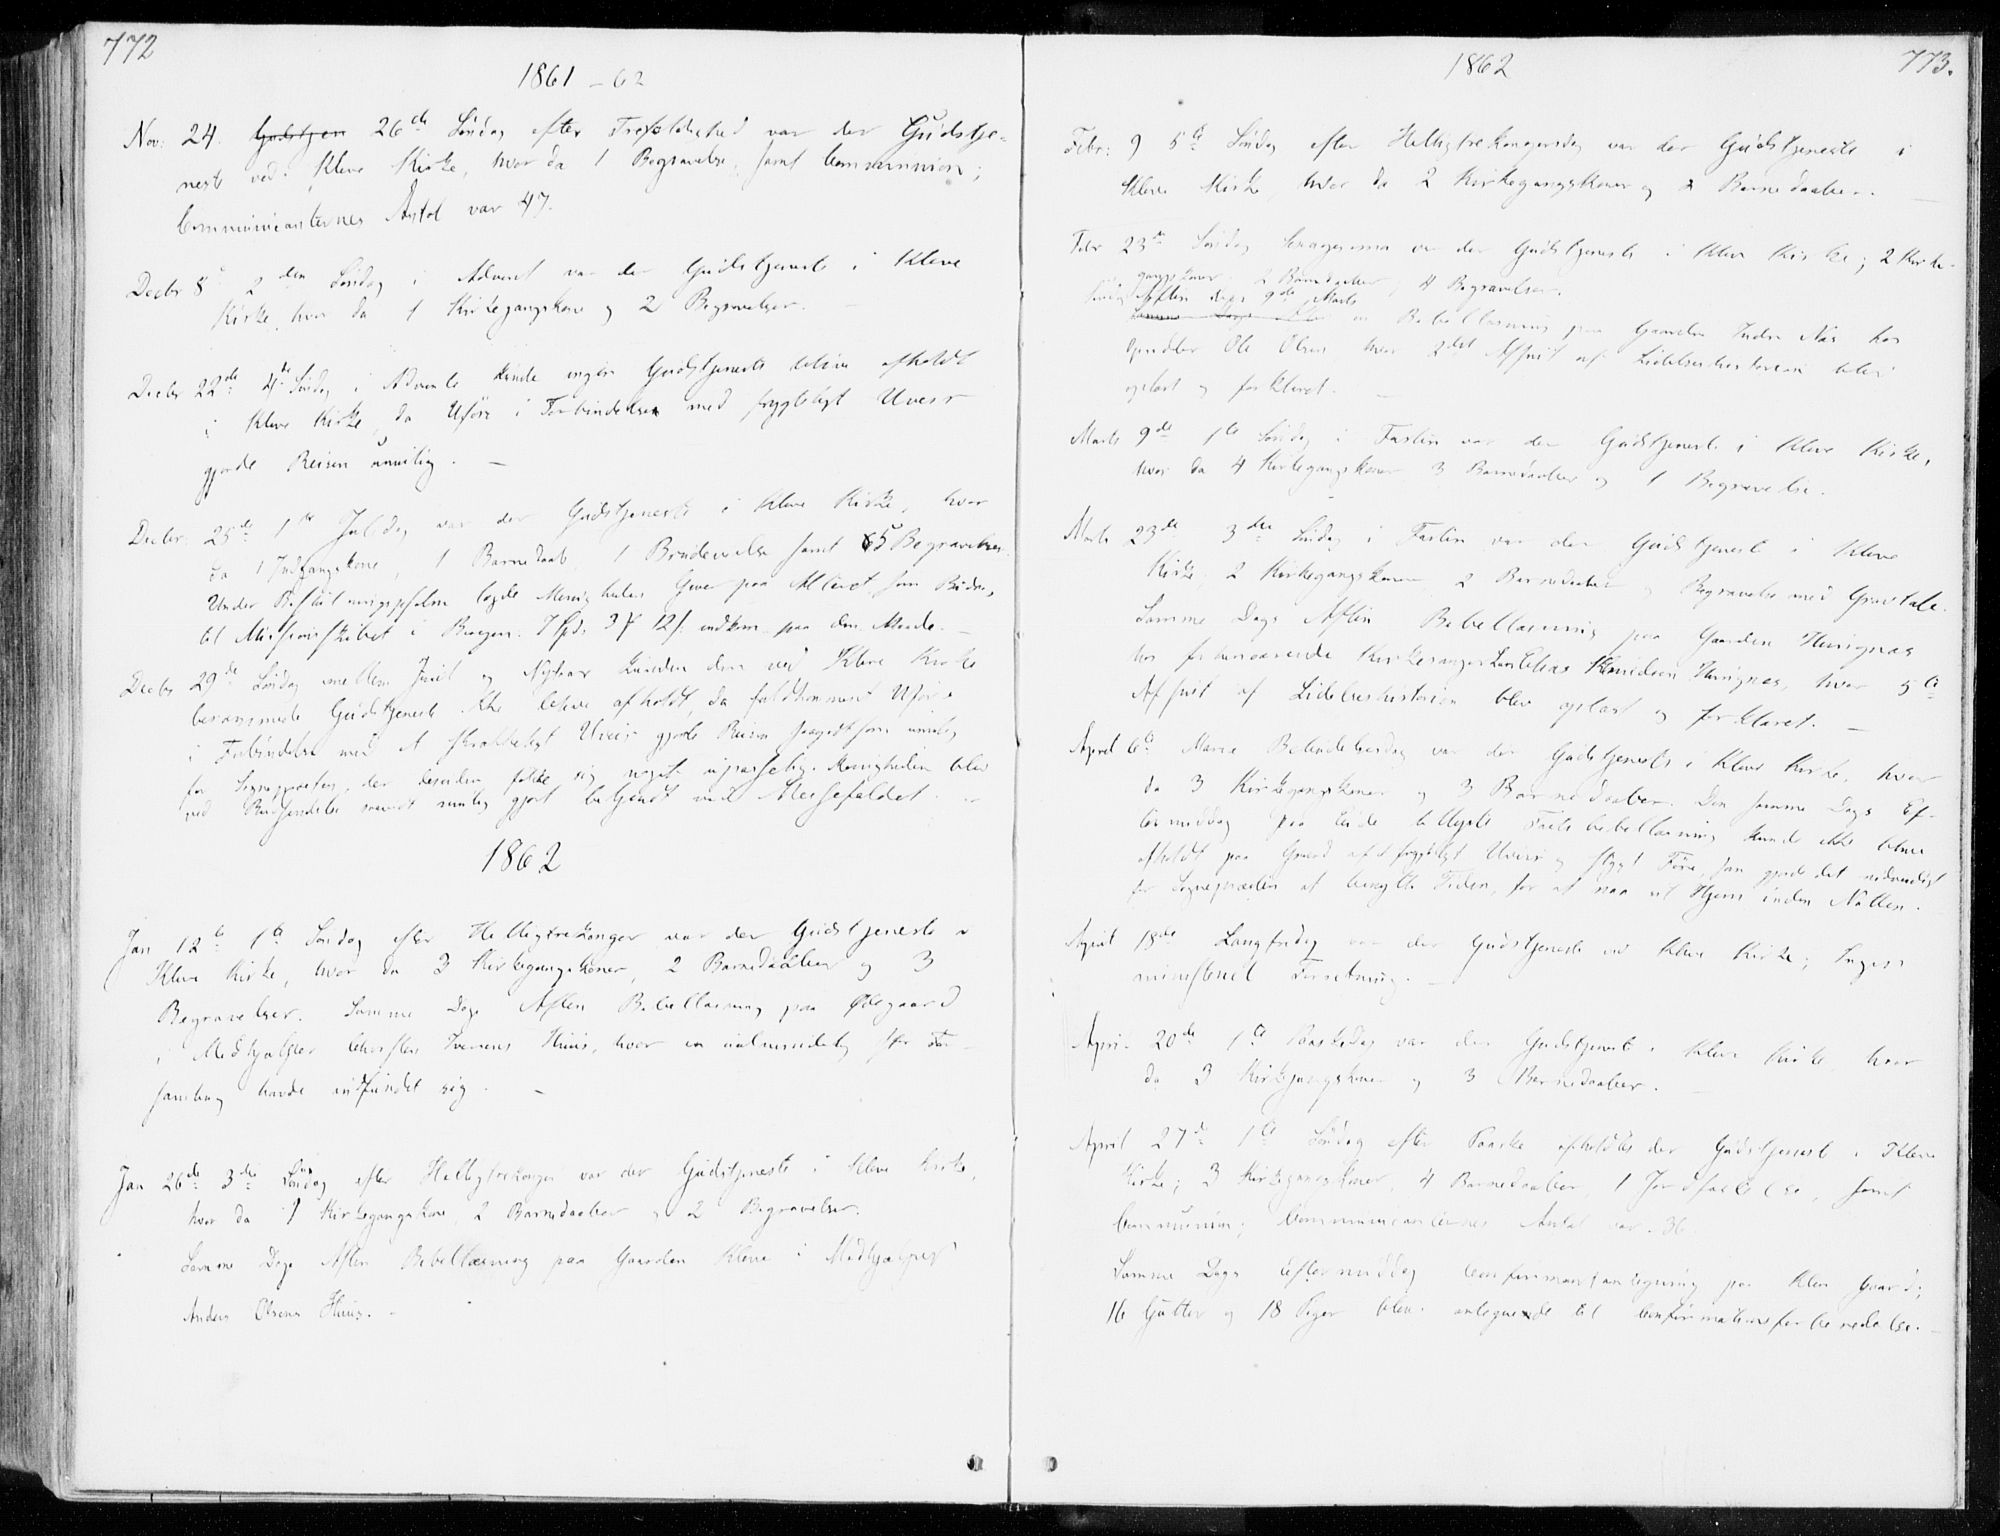 772
1861 - 62
Nov: 24. Gudstjen 26de Søndag efter Trefoldighed var der Gudstje-
neste ved Kleve Kirke, hvor da 1 Begravelse, samt Communion;
Communicanternes Antal var 47.
Decbr 8 2den Søndag i Advent var der Gudstjeneste i Kleve
Kirke, hvor da 1 Kirkegangskone og 2 Begravelser. —
Decbr 22de 4de Søndag i Advent kunde ingen Gudstjeneste blive afholdt
i Kleve Kirke, da Uføre i Forbindelse med frygteligt Uveir
gjorde Reisen umulig. —
Decbr. 25de 1ste Juledag var der Gudstjeneste i Kleve Kirke, hvor
da 1 Indgangskone, 1 Barnedaab, 1 Brudevielse samt 5 Begravelser.
Under lagde Menigheden Gaver paa Alteret som Bidrag
til Missionsskibet i Bergen. 7 Spd. 3 12 indkom paa den Maade. —
Decbr 29de Søndag mellem Juul og Nytaar kunde den ved Kleve Kirke
berammede Gudstjeneste ikke blive afholdt, da fuldkomment Uføre
i Forbindelse med et skrækkeligt Uveir gjorde Reisen saagodtsom umulig
for Sognepræsten, der desuden følte sig noget upasselig. Menigheden blev
ved gjort bekjendt med Messefaldet. —
1862
Jan 12te 1ste Søndag efter Helligtrekonger var der Gudstjeneste i
Kleve Kirke, hvor da 3 Kirkegangskoner, 2 Barnedaaber og 3
Begravelser. Samme Dags Aften Bibellæsning paa Ødegaard
i Medhjælper Christen Iversens Huus, hvor en ualmindelig stor For-
samling havde indfundet sig. —
Jan 26de 3die Søndag efter Helligtrekonger var der Gudstjeneste i Kleve Kirke,
hvor da 1 Kirkegangskone, 2 Barnedaaber og 2 Begravelser.
Samme Dags Aften Bibellæsning paa Gaarden Kleve i Medhjælper
Anders Olsens Huus. —
1862
773.
Febr: 9 5te Søndag efter Helligtrekongersdag var der Gudstjeneste i
Kleve Kirke, hvor da 2 Kirkegangskoner og 2 Barnedaaber. —
Febr 23de Søndag Sexagesima var der Gudstjeneste i Kleve Kirke; 2 Kirke-
gangskoner, 2 Barnedaaber, 4 Begravelser.
Aften den 9de Marts
Samme Dags Aften en Bibellæsning paa Gaarden Indre Næs hos
Ole Olsen hvor 2det Afsnit af Lidelseshistorien blev
oplæst og forklaret. —
Marts 9de 1ste Søndag i Fasten var der Gudstjeneste i Kleve Kirke,
hvor da 4 Kirkegangskoner 3 Barnedaaber og 1 Begravelse.
Marts 23de 3die Søndag i Fasten var der Gudstjeneste i Kleve
Kirke. 2 Kirkegangskoner 2 Barnedaaber og Begravelse med Gravtale.
Samme Dags Aften Bibellæsning paa Gaarden
hos forhenværende Kirkesanger hvor 5te
Afsnit af Lidelseshistorien blev oplæst og forklaret. —
April 6te Mariæ Bebudelsesdag var der Gudstjeneste i Kleve Kirke, hvor
da 3 Kirkegangskoner og 3 Barnedaaber. Den samme Dags Ef-
termiddag paa tillyste Bibellæsning kunde ikke blive
afholdt paa Grund af et frygteligt Uveir og stygt Føre, som gjorde det nødvendigt
for Sognepræsten at benytte Tiden, for at naa sit Hjem inden Natten.
April 18de Langfredag var der Gudstjeneste ved Kleve Kirke; Ingen
ministeriel Forretning. —
April 20de 1ste Paaskedag var der Gudstjeneste i Kleve Kirke hvor
da 3 Kirkegangskoner og 3 Barnedaaber.
April 27de 1ste Søndag efter Paaske afholdtes der Gudstjeneste i Kleve
Kirke; 3 Kirkegangskoner, 4 Barnedaaber, 1 Jordfæstelse, samt
Communion; Communicanternes Antal var 36.
Samme Dags Eftermiddag Confirmantantegning paa Kleve Gaard;
16 Gutter og 18 Piger blev antegnede til Confirmationsforberedelse. —